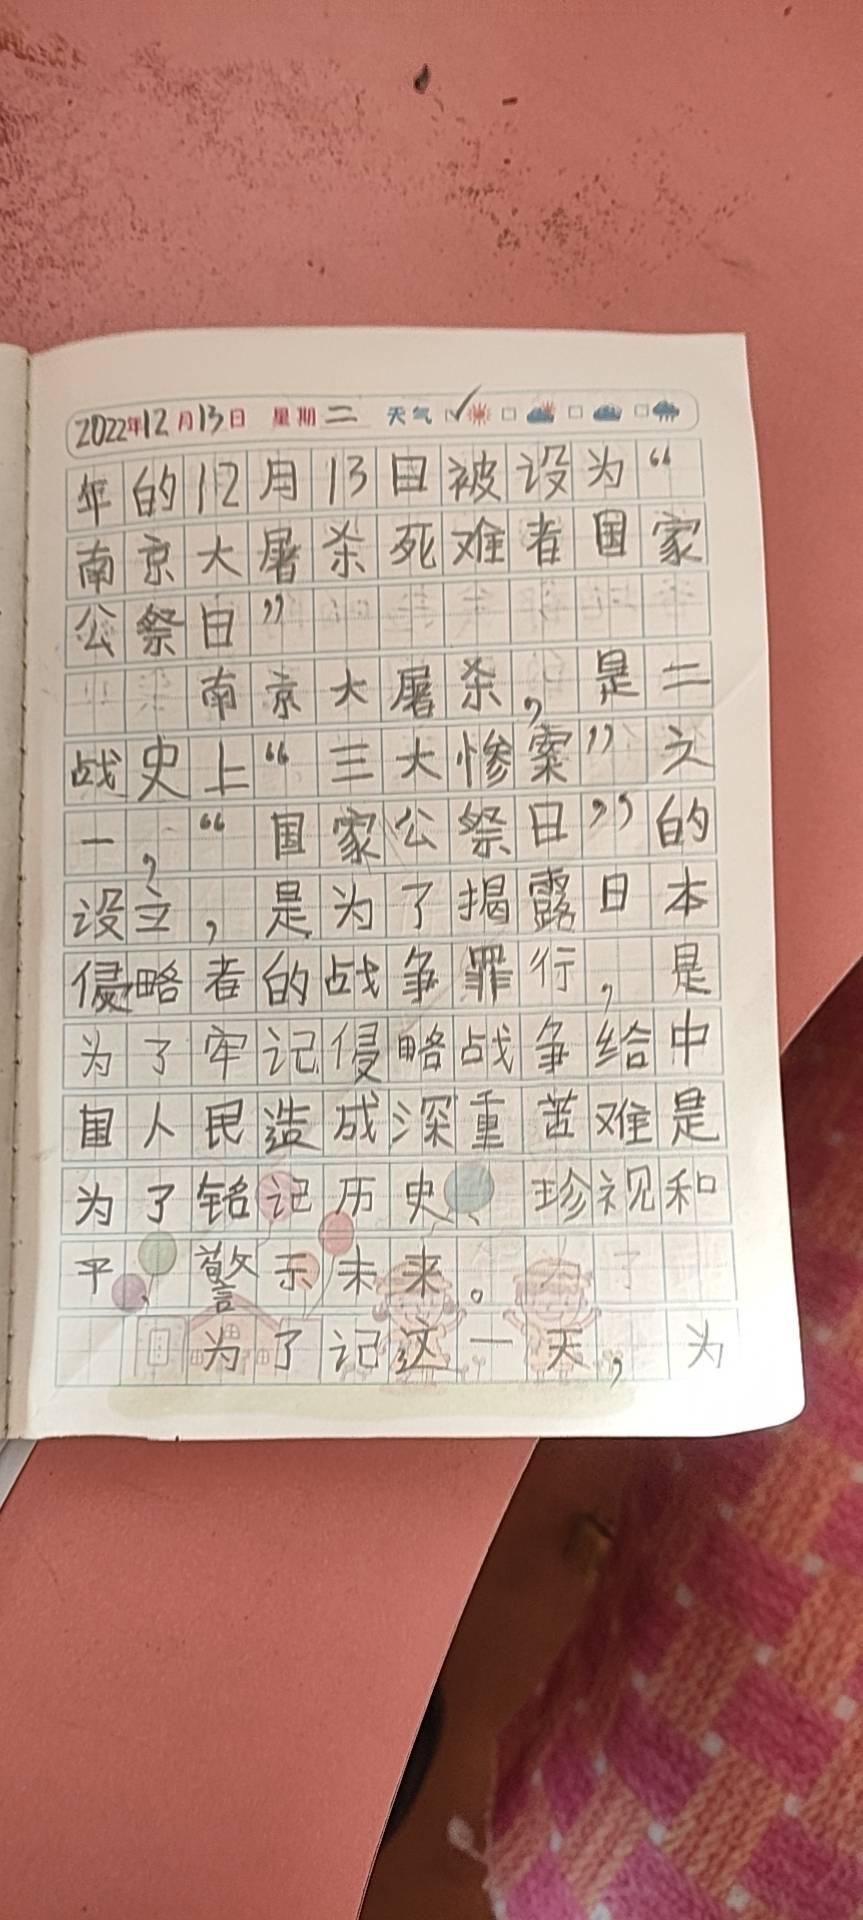 2022年12月13日 星期二 天气
年的12月13日被设为“
南京大屠杀死难者国家
公祭日”
南京大屠杀,是二
战史上“三大惨案”之
一,“国家公祭日”的
设立,是为了揭露日本
侵略者的战争罪行,是
为了牢记侵略战争给中
国人民造成深重苦难是
为了铭记历史 珍视和
平、警示未来。
为了记这一天,为